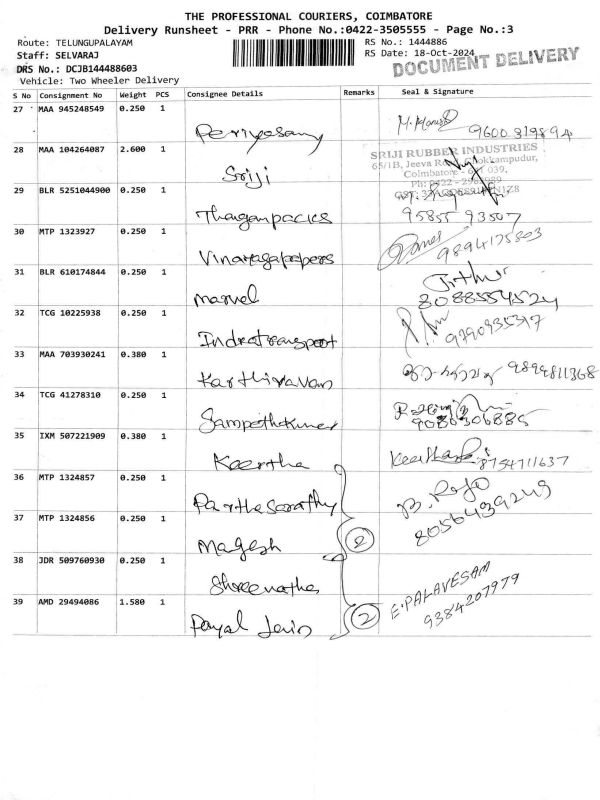 THE PROFESSIONAL COURIERS, COIMBATORE
Delivery Runsheet - PRR - Phone No.:0422-3505555 - Page No.:3
Route: TELUNGUPALAYAM RS No.: 1444886
Staff: SELVARAJ RS Date: 18-Oct-2024
DOCUMENT DELIVERY
DRS No.: DCJB144488603
Vehicle: Two Wheeler Delivery
S No Consignment No Weight PCS Consignee Details Remarks Seal & Signature
27 MAA 945248549 0.250 1
Periyasamy 9600319894
28 MAA 104264087 2.600 1
SRIJI RUBBER INDUSTRIES
65/1B, Jeeva
Coimbatore
Sriji
29 BLR 5251044900 0.250 1
95855 93507
30 MTP 1323927 0.250 1
Vinayagapapers 9894175803
31 BLR 610174844 0.250 1
Marvel 8088554524
32 TCG 10225938 0.250 1
Indratransport
33 MAA 703930241 0.380 1
Karthiravan
34 TCG 41278310 0.250 1
Sampethkumer
35 IXM 507221909 0.380 1
Keertha 8754711637
36 MTP 1324857 0.250 1
Parthasarathy B. Raja
37 MTP 1324856 0.250 1
8056439249
Magesh 2
38 JDR 509760930 0.250 1
Shreenatha
39 AMD 29494086 1.580 1
E.PALAVESAM
Payal Jain 2 9384207979